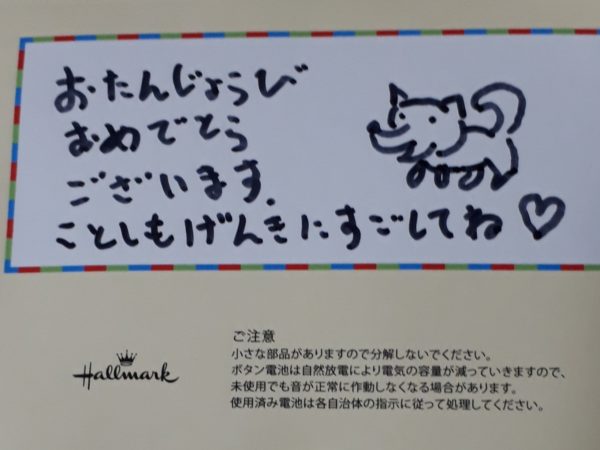 おたんじょうび
おめでとう
ございます.
ことしもげんきにすごしてね♡
Hallmark
ご注意
小さな部品がありますので分解しないでください。
ボタン電池は自然放電により電気の容量が減っていきますので、
未使用でも音が正常に作動しなくなる場合があります。
使用済み電池は各自治体の指示に従って処理してください。